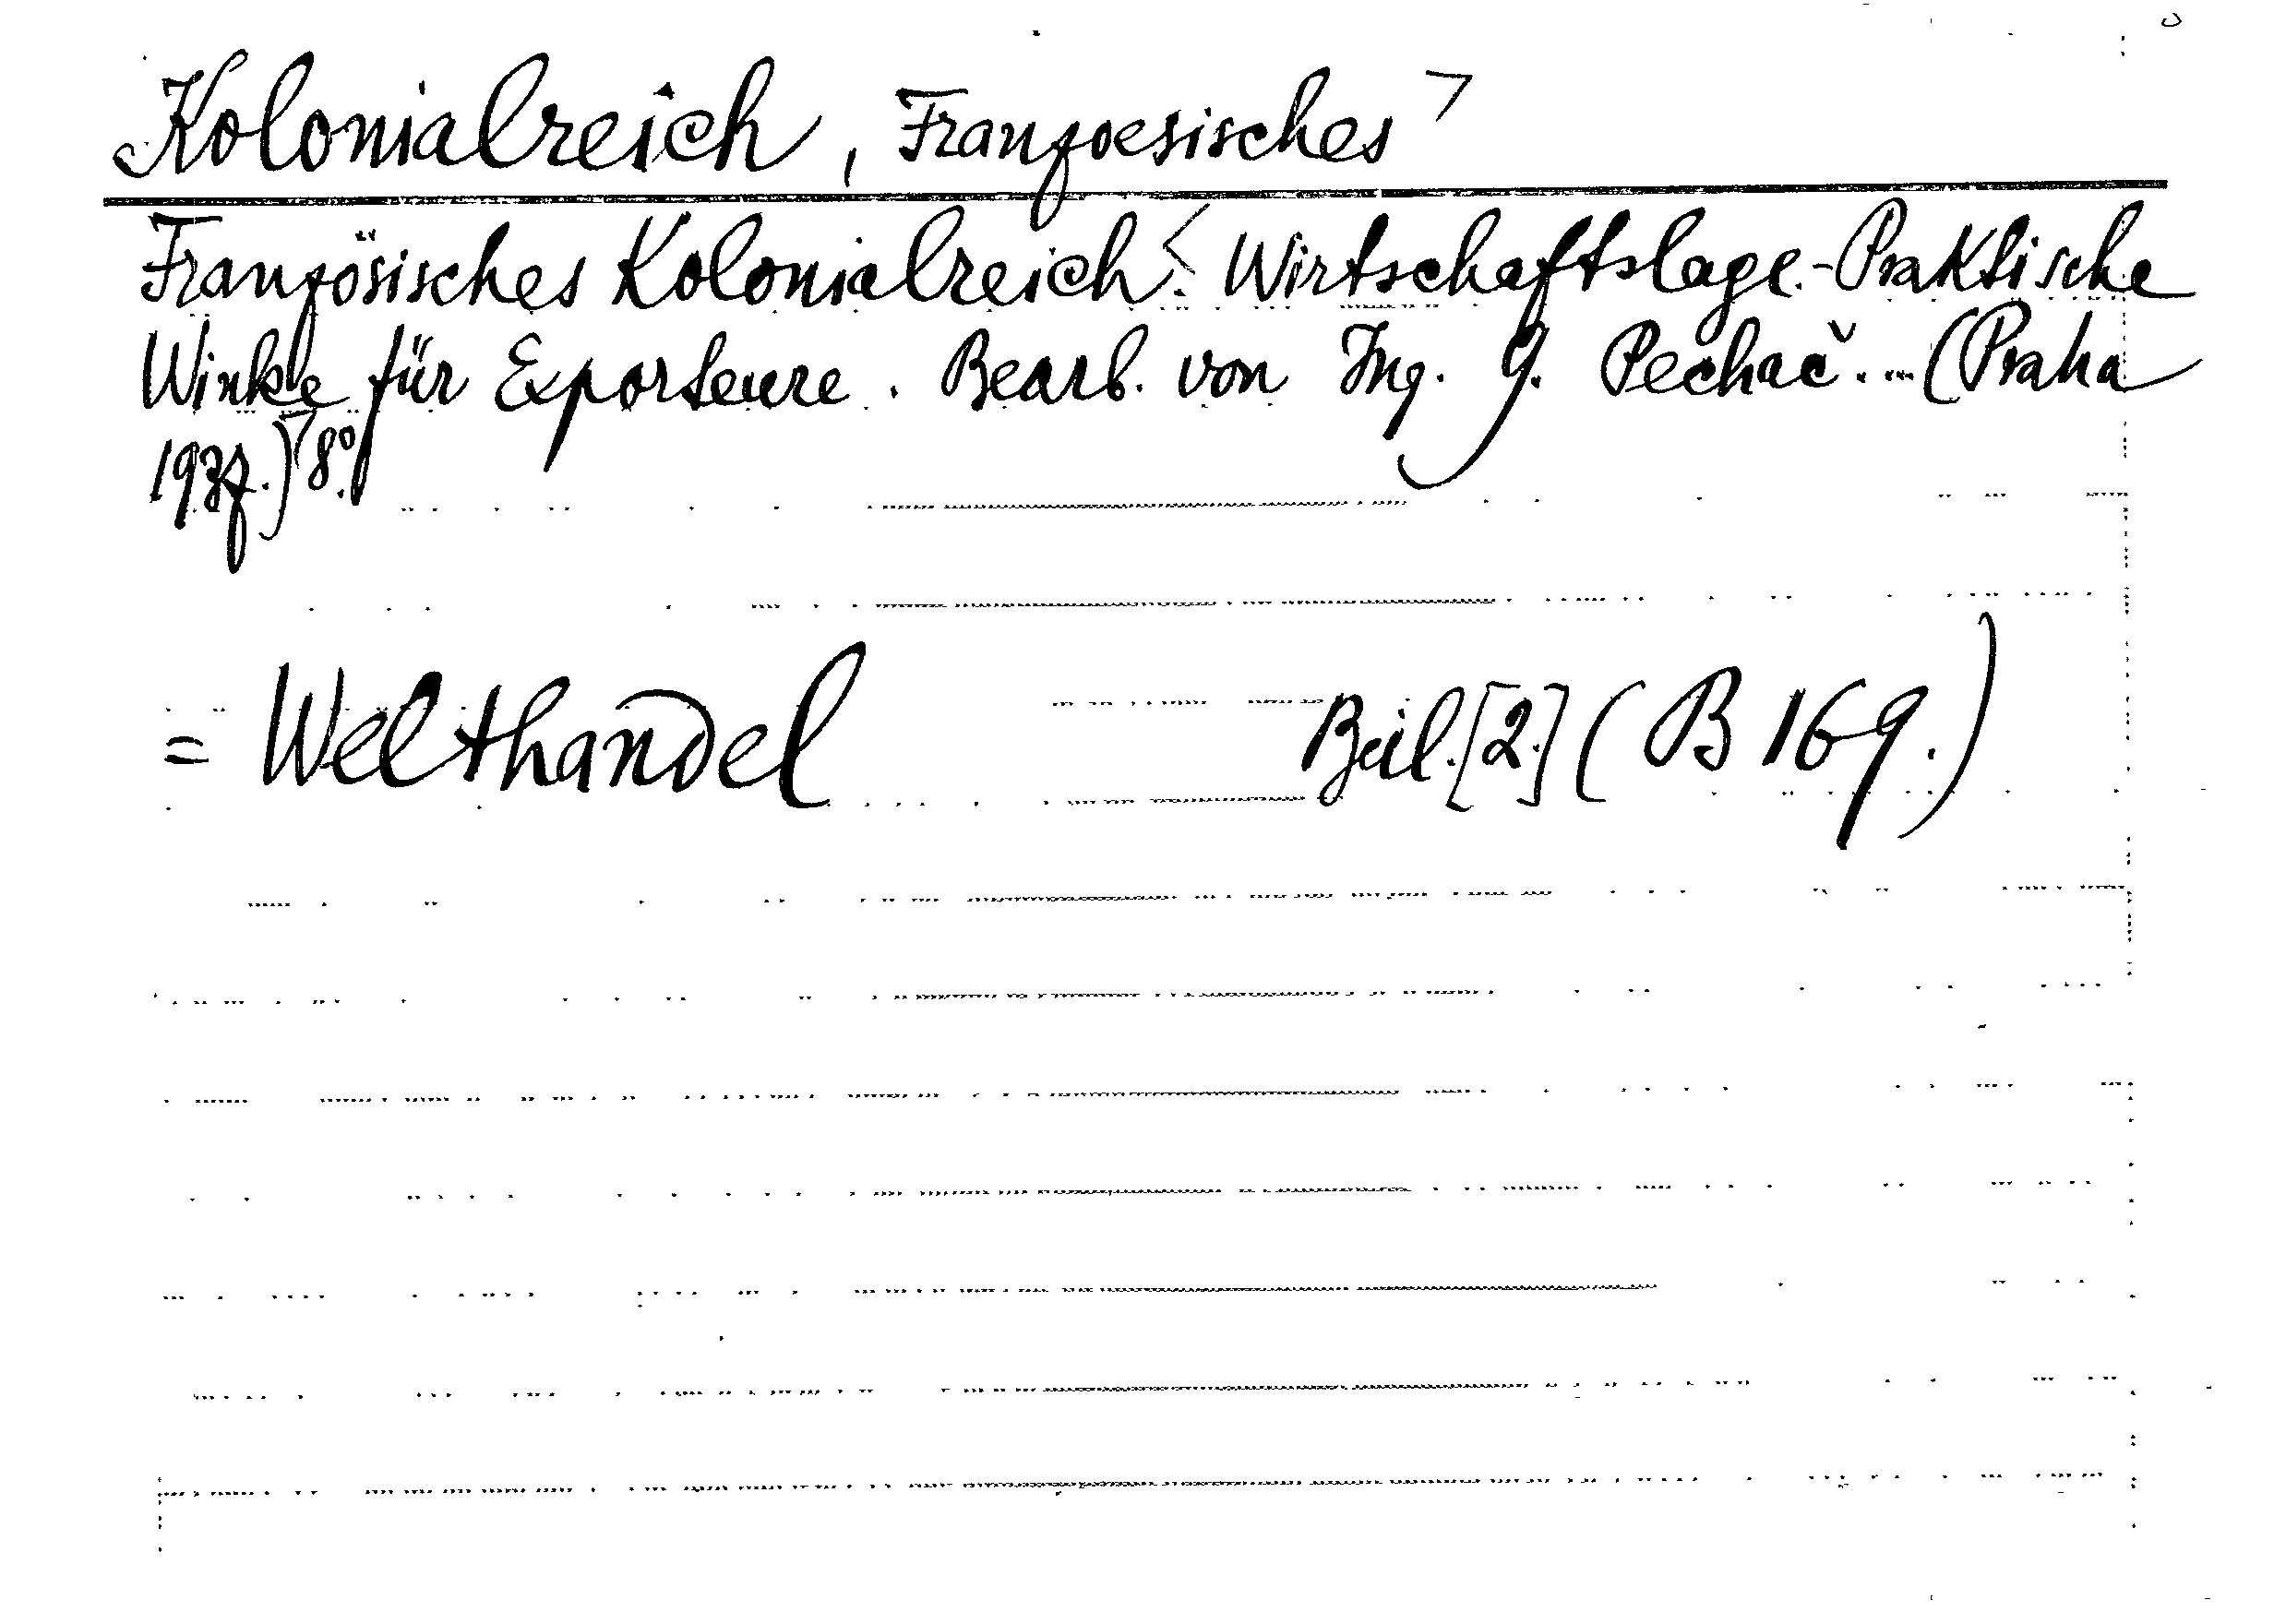 Kolonialreich, Franzoesisches ⌝
Französisches Kolonialreich. < Wirtschaftslage.-Praktische
Winke für Exporteure. Bearb. von Ing. J. Pechač. ... (Praha
1937.) ⌝ 8°.
= Welthandel Beil. [2.] (B 169.)